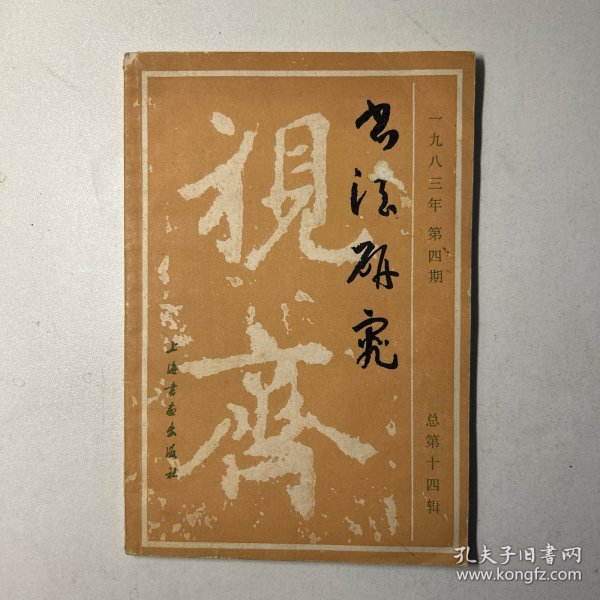 一九八三年 第四期
总第十四辑
书法研究
視齋
上海书画出版社
孔夫子旧书网
www.kongfz.com